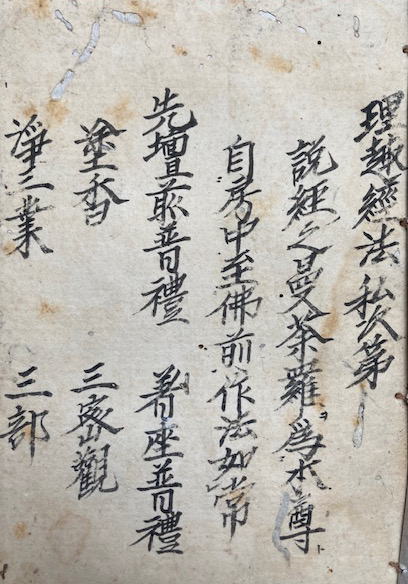 理趣經法 私次第
説經之曼荼羅ヲ爲本尊ト
自房中至佛前作法如常
先壇前普禮 着座普禮
塗香 三密觀
淨三業 三部